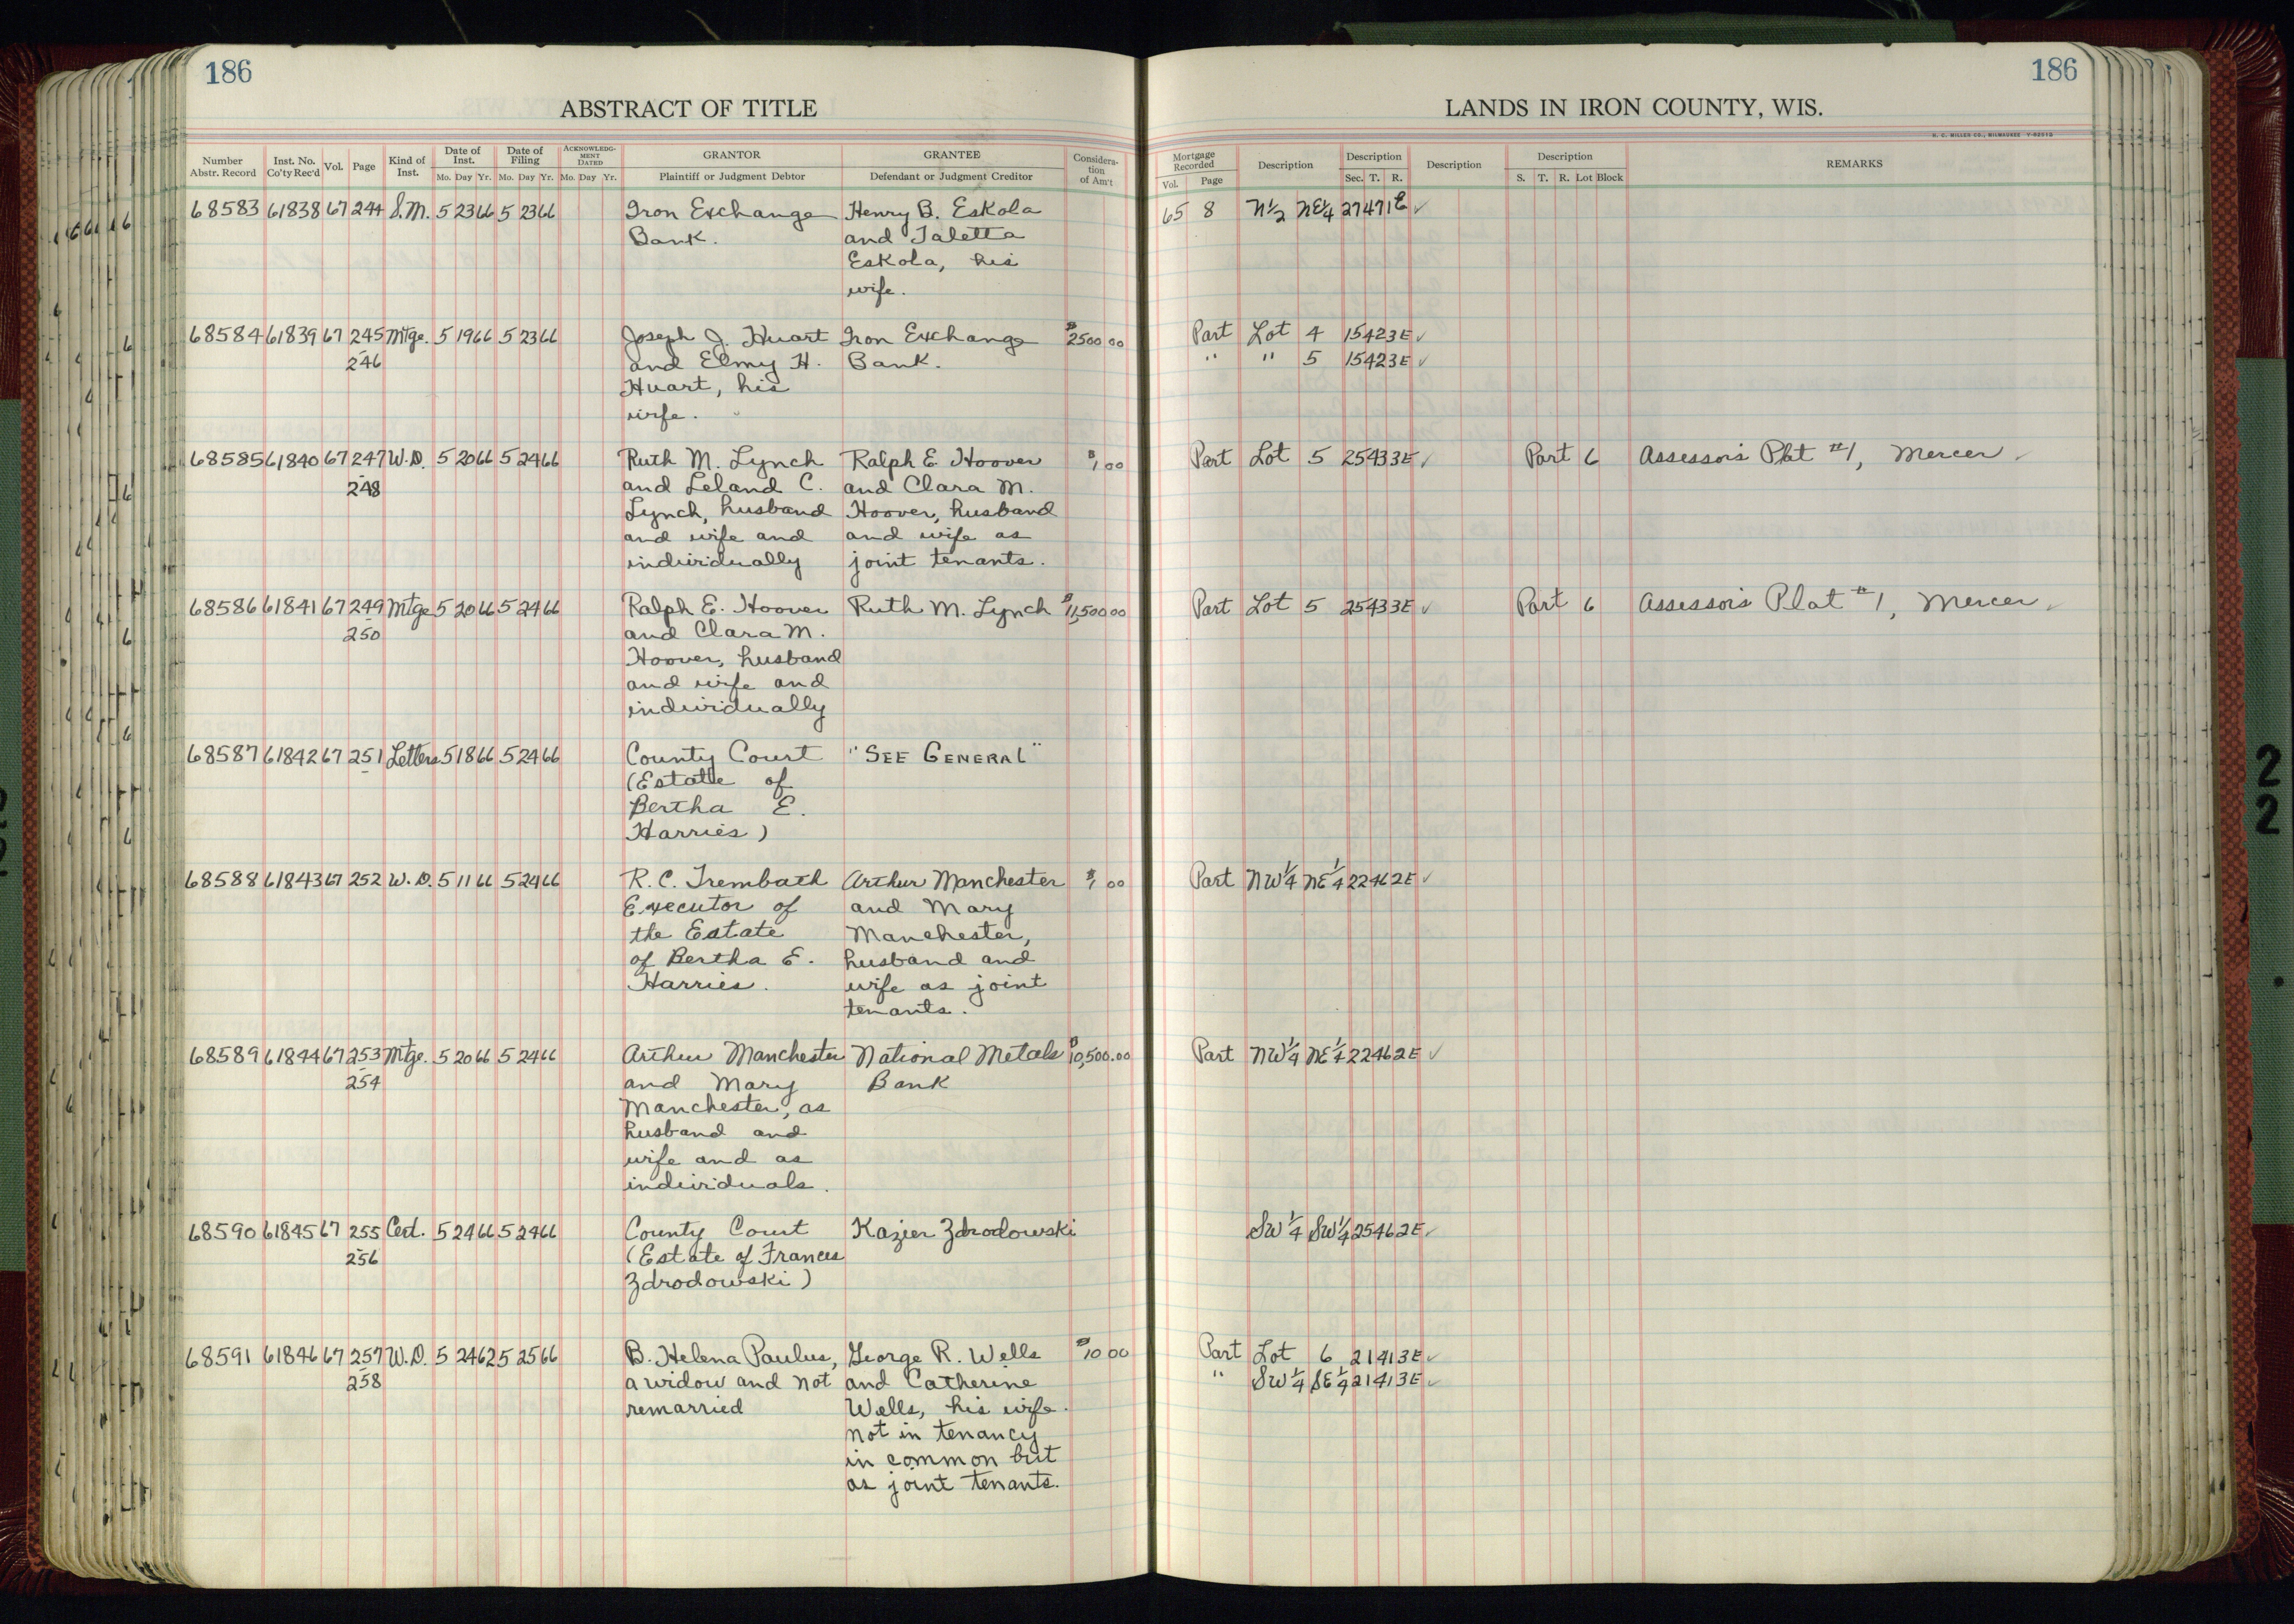 186
186
ABSTRACT OF TITLE
LANDS IN IRON COUNTY, WIS.
H. C. MILLER CO., MILWAUKEE Y-52512
Number Abstr. Record Inst. No. Co'ty Rec'd Vol. Page Kind of Inst. Date of Inst. Mo. Day Yr. Date of Filing Mo. Day Yr. ACKNOWLEDGMENT DATED Mo. Day Yr. GRANTOR Plaintiff or Judgment Debtor GRANTEE Defendant or Judgment Creditor Consideration of Am't
Mortgage Recorded Vol. Page Description Description Sec. T. R. Description Description S. T. R. Lot Block REMARKS
68583 61838 67 244 S.M. 5 23 66 5 23 66 Iron Exchange Henry B. Eskola 65 8 N1/2 NE1/4 27 47 1E ✓
Bank. and Taletta
Eskola, his
wife.
68584 61839 67 245 Mtge. 5 19 66 5 23 66 Joseph J. Huart Iron Exchange $2500 00 Part Lot 4 15 42 3E ✓
246 and Elmy H. Bank. " " 5 15 42 3E ✓
Huart, his
wife.
68585 61840 67 247 W.D. 5 20 66 5 24 66 Ruth M. Lynch Ralph E. Hoover $1 00 Part Lot 5 25 43 3E ✓ Part 6 Assessor's Plat #1, Mercer ✓
248 and Leland C. and Clara M.
Lynch, husband Hoover, husband
and wife and and wife as
individually joint tenants.
68586 61841 67 249 Mtge 5 20 66 5 24 66 Ralph E. Hoover Ruth M. Lynch $11,500 00 Part Lot 5 25 43 3E ✓ Part 6 Assessor's Plat #1, Mercer ✓
250 and Clara M.
Hoover, husband
and wife and
individually
68587 61842 67 251 Letters 5 18 66 5 24 66 County Court "SEE GENERAL"
(Estate of
Bertha E.
Harries)
68588 61843 67 252 W.D. 5 11 66 5 24 66 R. C. Trembath Arthur Manchester $1 00 Part NW1/4 NE1/4 22 46 2E ✓
Executor of and Mary
the Estate Manchester,
of Bertha E. husband and
Harries. wife as joint
tenants.
68589 61844 67 253 Mtge. 5 20 66 5 24 66 Arthur Manchester National Metals $10,500.00 Part NW1/4 NE1/4 22 46 2E ✓
254 and Mary Bank
Manchester, as
husband and
wife and as
individuals.
68590 61845 67 255 Cert. 5 24 66 5 24 66 County Court Kazier Zdrodowski SW1/4 SW1/4 25 46 2E ✓
256 (Estate of Frances
Zdrodowski)
68591 61846 67 257 W.D. 5 24 62 5 25 66 B. Helena Paulus, George R. Wells $10 00 Part Lot 6 21 41 3E ✓
258 a widow and not and Catherine " SW1/4 SE1/4 21 41 3E ✓
remarried Wells, his wife.
not in tenancy
in common but
as joint tenants.